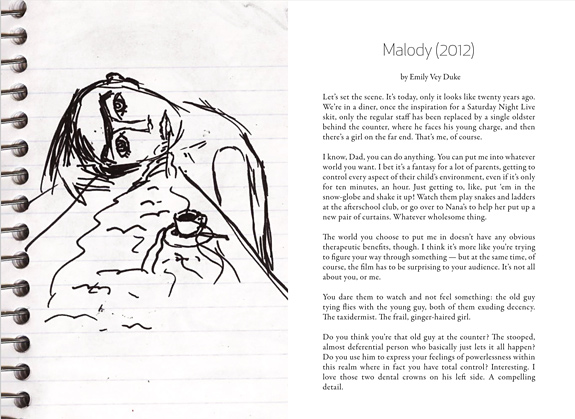 Malody (2012)
by Emily Vey Duke
Let's set the scene. It's today, only it looks like twenty years ago.
We're in a diner, once the inspiration for a Saturday Night Live
skit, only the regular staff has been replaced by a single oldster
behind the counter, where he faces his young charge, and then
there's a girl on the far end. That's me, of course.
I know, Dad, you can do anything. You can put me into whatever
world you want. I bet it's a fantasy for a lot of parents, getting to
control every aspect of their child's environment, even if it's only
for ten minutes, an hour. Just getting to, like, put 'em in the
snow-globe and shake it up! Watch them play snakes and ladders
at the afterschool club, or go over to Nana's to help her put up a
new pair of curtains. Whatever wholesome thing.
The world you choose to put me in doesn't have any obvious
therapeutic benefits, though. I think it's more like you're trying
to figure your way through something — but at the same time, of
course, the film has to be surprising to your audience. It's not all
about you, or me.
You dare them to watch and not feel something: the old guy
tying flies with the young guy, both of them exuding decency.
The taxidermist. The frail, ginger-haired girl.
Do you think you're that old guy at the counter? The stooped,
almost deferential person who basically just lets it all happen?
Do you use him to express your feelings of powerlessness within
this realm where in fact you have total control? Interesting. I
love those two dental crowns on his left side. A compelling
detail.